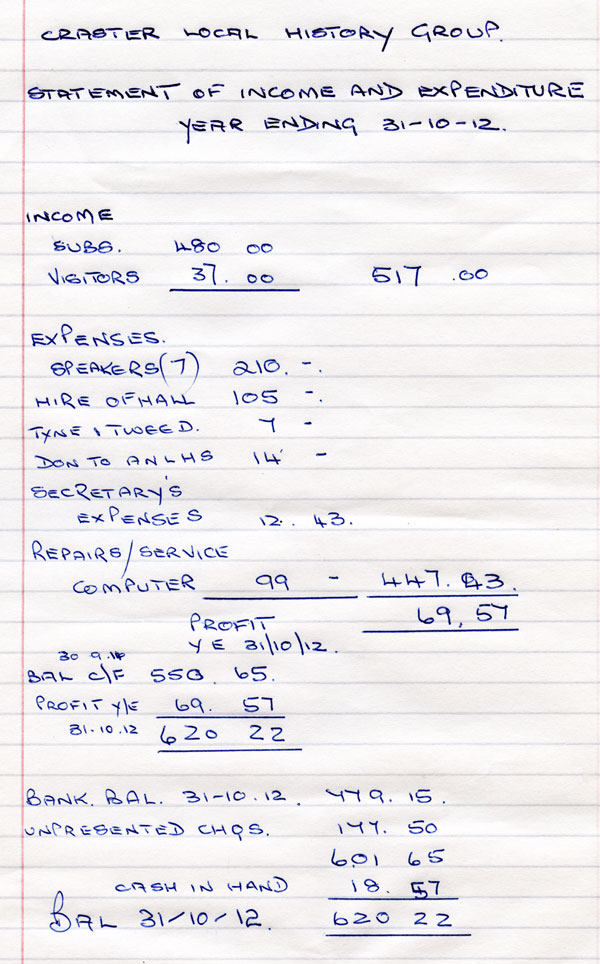 CRASTER LOCAL HISTORY GROUP.
STATEMENT OF INCOME AND EXPENDITURE
YEAR ENDING 31-10-12.
INCOME
SUBS. 480 00
VISITORS 37. 00 517 .00
EXPENSES.
SPEAKERS (7) 210. -.
HIRE OF HALL 105 -.
TYNE & TWEED. 7 -
DON TO ANLHS 14 -
SECRETARY'S
EXPENSES 12. 43.
REPAIRS/SERVICE
COMPUTER 99 - 447. 43.
PROFIT 69, 57
Y E 31/10/12.
30
BAL C/F 550. 65.
PROFIT Y/E 69. 57
31-10.12 620 22
BANK. BAL. 31-10.12. 779. 15.
UNPRESENTED CHQS. 177. 50
601 65
CASH IN HAND 18. 57
BAL 31/10/12. 620 22